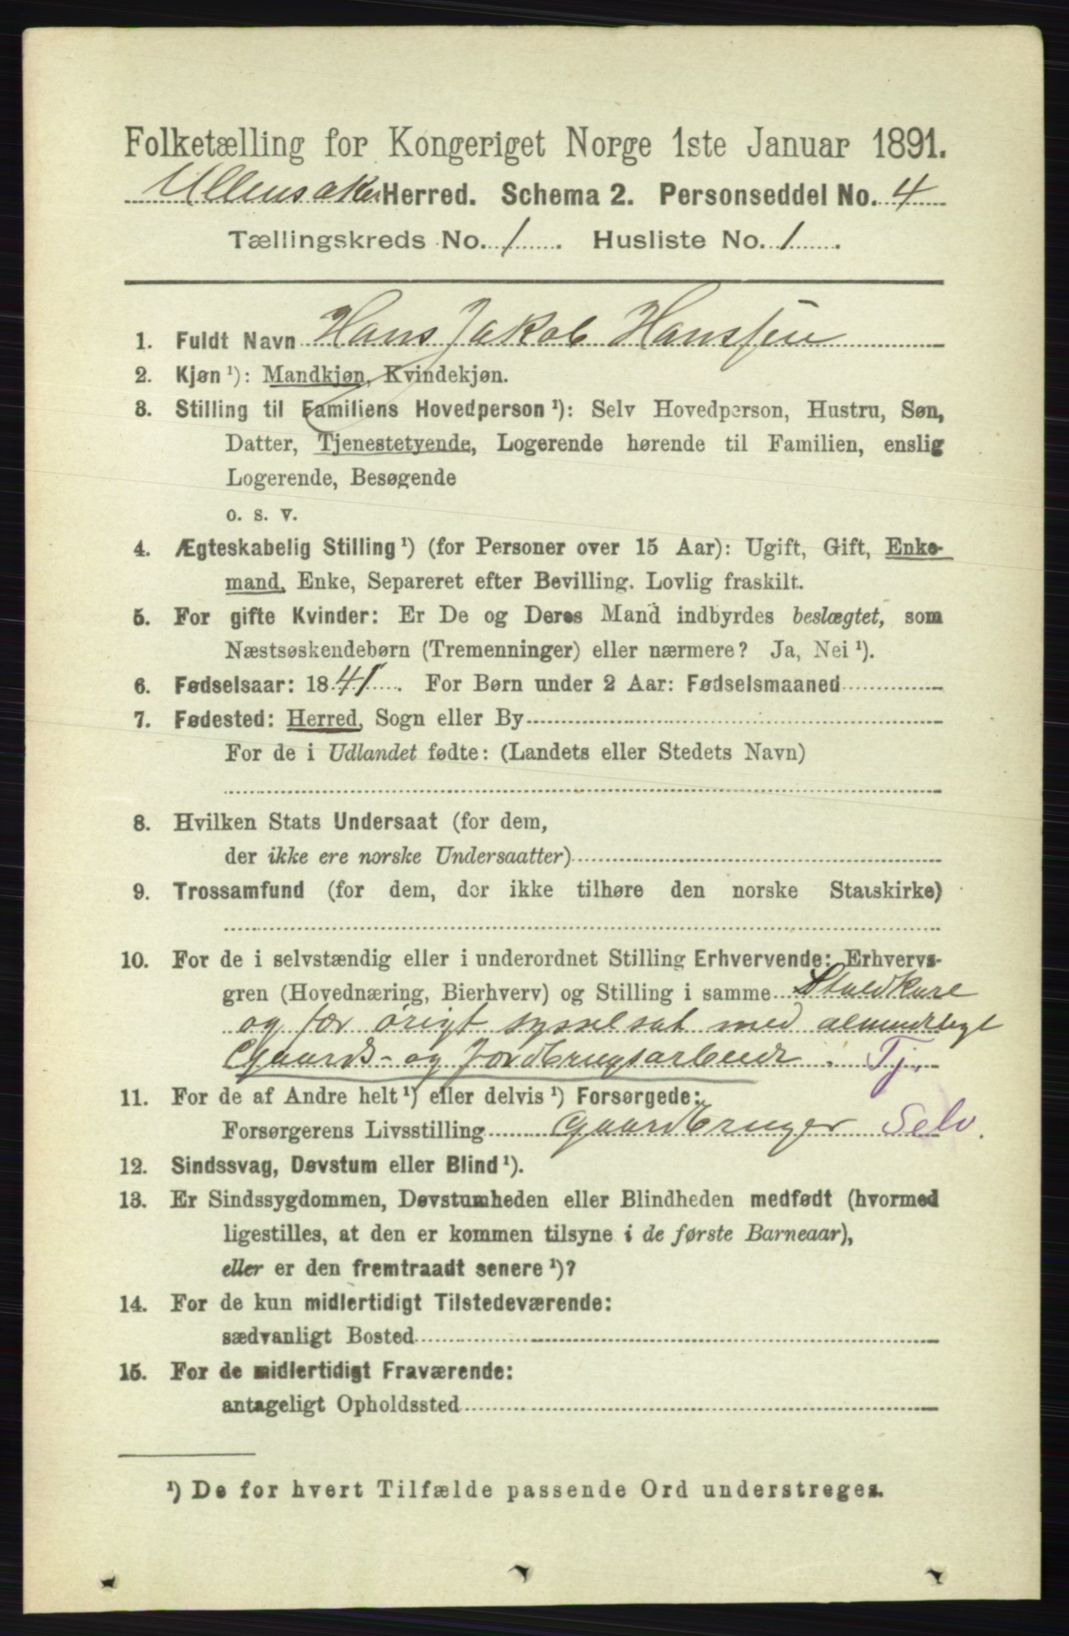 Folketælling for Kongeriget Norge 1ste Januar 1891.
Ullensaker Herred. Schema 2. Personseddel No. 4
Tællingskreds No. 1. Husliste No. 1.
1. Fuldt Navn Hans Jakob Hanssen
2. Kjøn ¹): Mandkjøn, Kvindekjøn.
3. Stilling til Familiens Hovedperson ¹): Selv Hovedperson, Hustru, Søn,
Datter, Tjenestetyende, Logerende hørende til Familien, enslig
Logerende, Besøgende
o. s. v.
4. Ægteskabelig Stilling ¹) (for Personer over 15 Aar): Ugift, Gift, Enke-
mand, Enke, Separeret efter Bevilling. Lovlig fraskilt.
5. For gifte Kvinder: Er De og Deres Mand indbyrdes beslægtet, som
Næstsøskendebørn (Tremenninger) eller nærmere? Ja, Nei ¹).
6. Fødselsaar: 1841. For Børn under 2 Aar: Fødselsmaaned
7. Fødested: Herred, Sogn eller By
For de i Udlandet fødte: (Landets eller Stedets Navn)
8. Hvilken Stats Undersaat (for dem,
der ikke ere norske Undersaatter)
9. Trossamfund (for dem, der ikke tilhøre den norske Statskirke)
10. For de i selvstændig eller i underordnet Stilling Erhvervende: Erhvervs-
gren (Hovednæring, Bierhverv) og Stilling i samme Staldkarl
og for örigt sysselsat med almindeligt
Gaards- og Jordbrugsarbeide. Tj.
11. For de af Andre helt ¹) eller delvis ¹) Forsørgede:
Forsørgerens Livsstilling Gaardbruger Selv.
12. Sindssvag, Døvstum eller Blind ¹).
13. Er Sindssygdommen, Døvstumheden eller Blindheden medfødt (hvormed
ligestilles, at den er kommen tilsyne i de første Barneaar),
eller er den fremtraadt senere ¹)?
14. For de kun midlertidigt Tilstedeværende:
sædvanligt Bosted
15. For de midlertidigt Fraværende:
antageligt Opholdssted
¹) De for hvert Tilfælde passende Ord understreges.